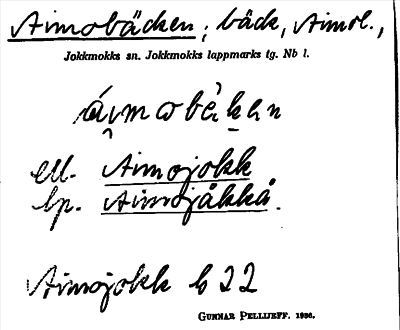 Aimobäcken; bäck, Aimol.,
Jokkmokks sn. Jokkmokks lappmarks tg. Nb l.
áimobèkan
ell. Aimojokk
lp. Aimojåkkå.
Aimojokk b 22
GUNNAR PELLIJEFF. 1936.